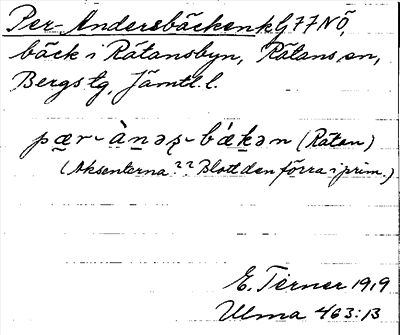 Per-Andersbäcken kG77NÖ,
bäck i Rätansbyn, Rätans sn,
Bergs tg, Jämtl. l.
pær-ànəʂ-bǽkən (Rätan)
(Aksenterna?? Blott den förra i prim.)
E. Terner 1919
Ulma 463:13